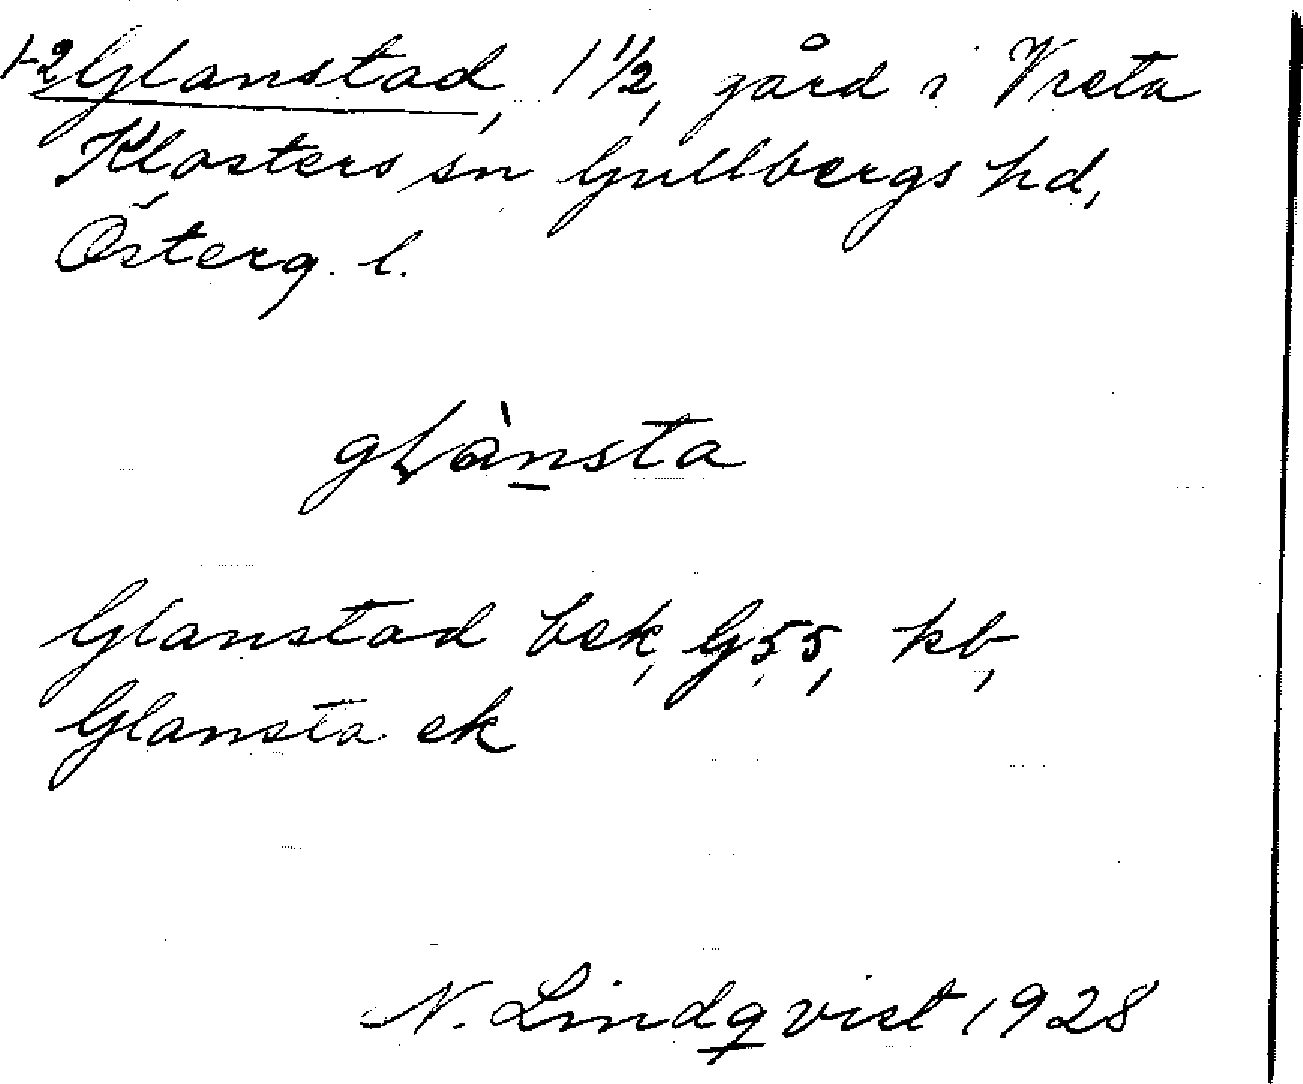 1-2 Glanstad, 1 1/2, gård i Vreta
Klosters sn Gullbergs hd,
Österg. l.
glànsta
Glanstad bek, G55, kb,
Glansta ek
N. Lindqvist 1928